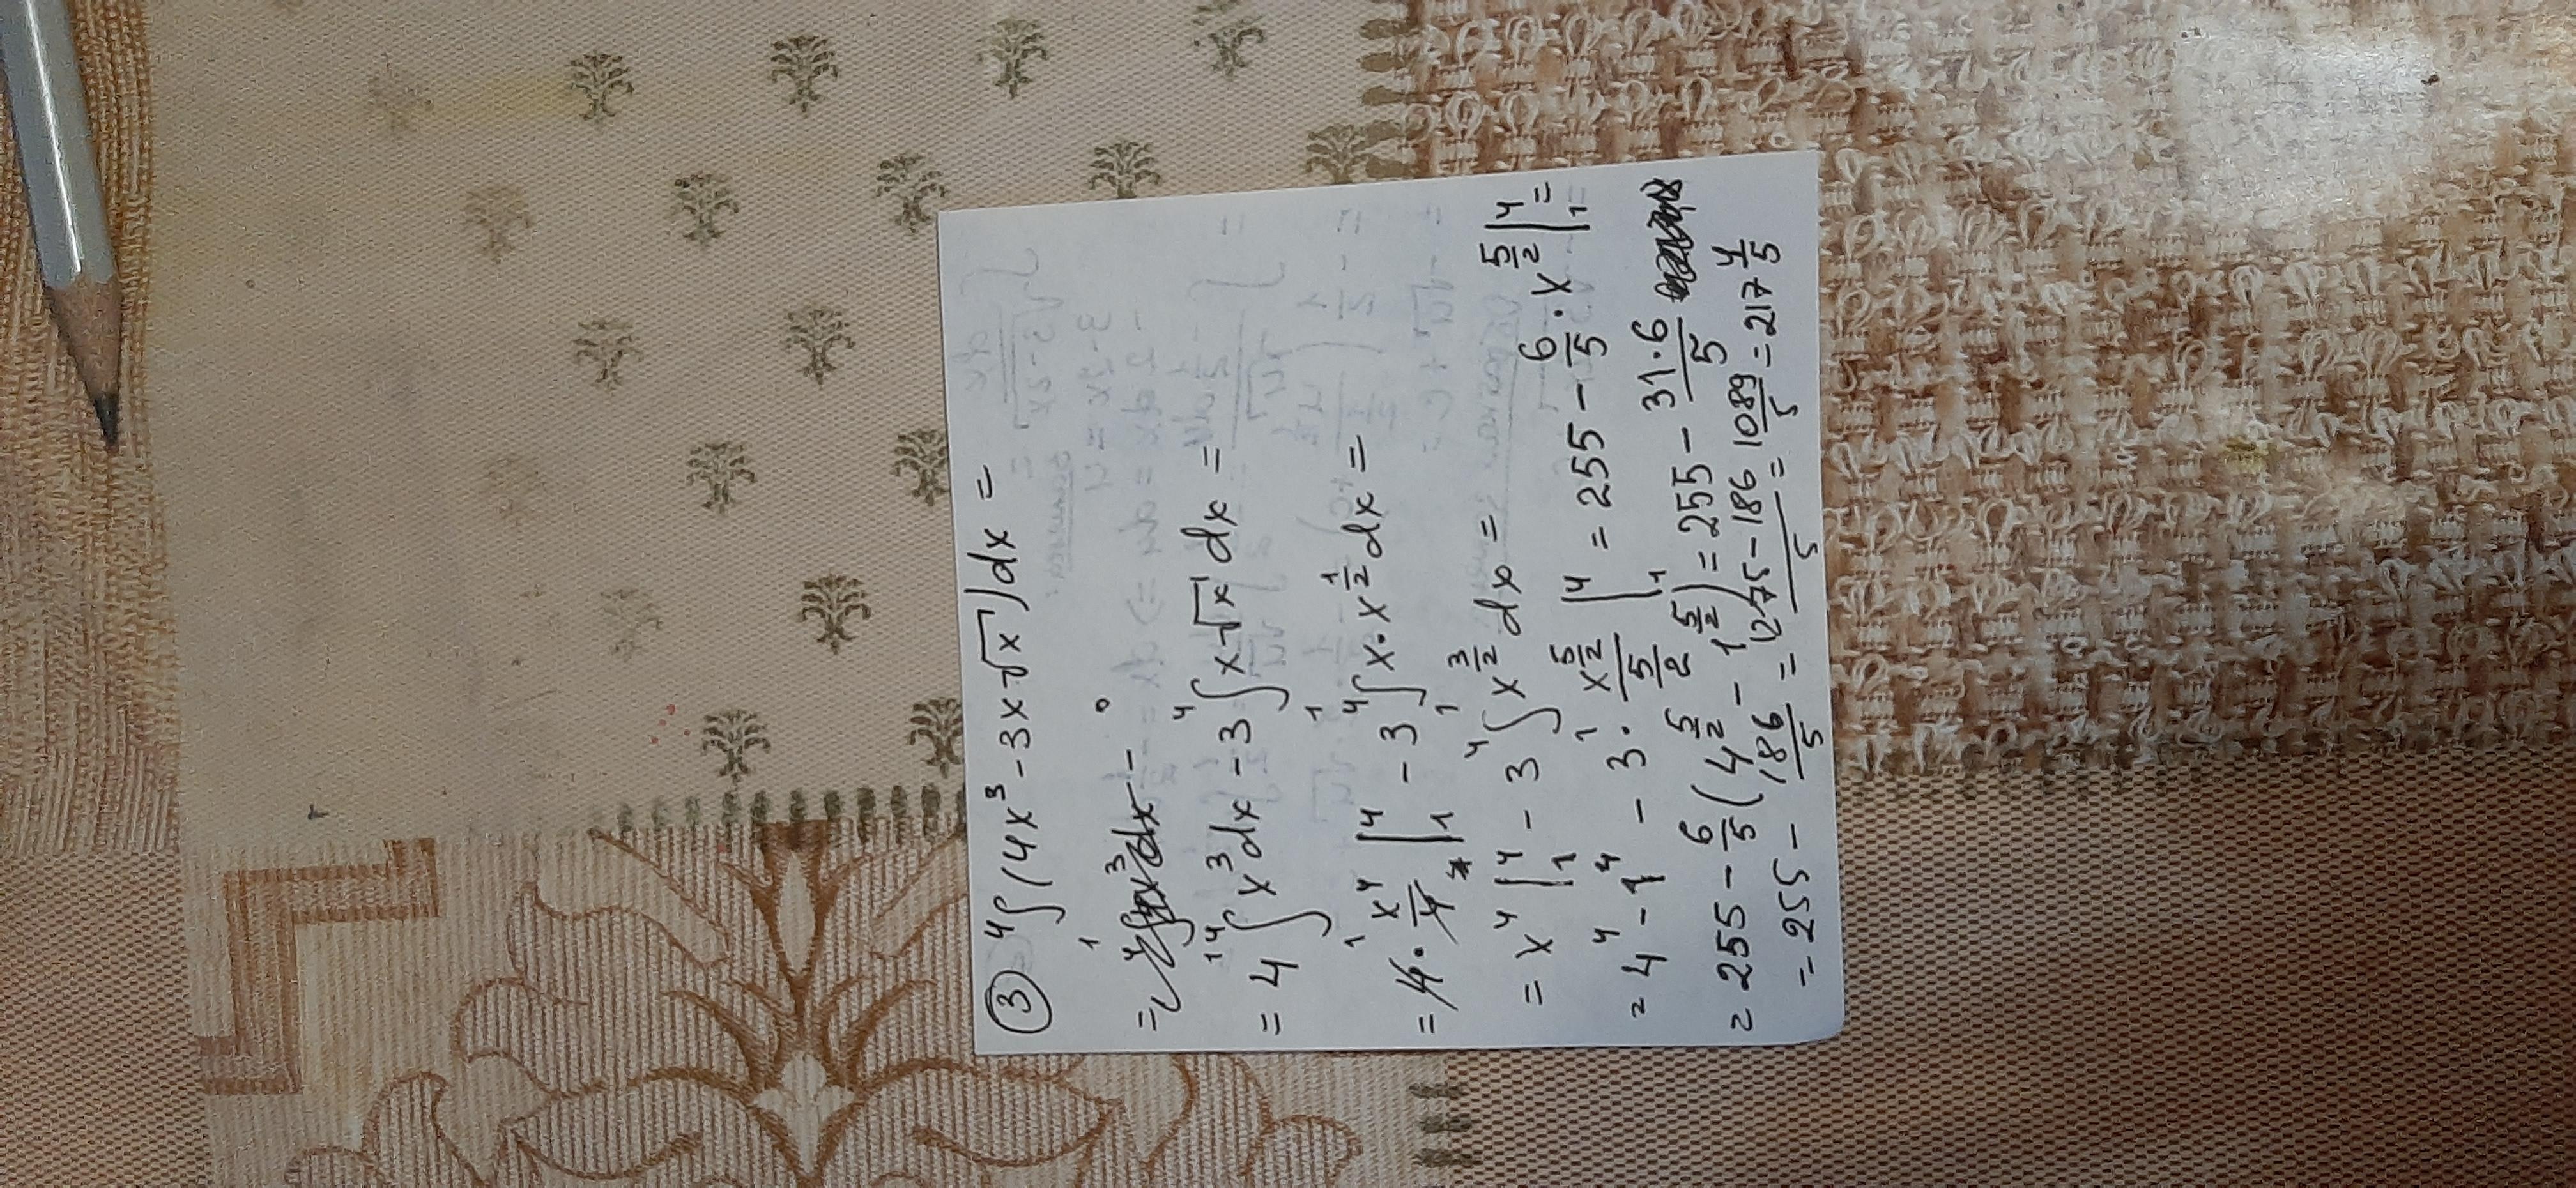 ③ ⁴∫₁ (4x³ - 3x√x) dx =
= 4 ⁴∫₁ x³ dx - 3 ⁴∫₁ x√x dx =
= 4 · x⁴/4 |⁴₁ - 3 ⁴∫₁ x · x^(1/2) dx =
= x⁴ |⁴₁ - 3 ⁴∫₁ x^(3/2) dx =
= 4⁴ - 1⁴ - 3 · x^(5/2)/(5/2) |⁴₁ = 255 - 6/5 · x^(5/2) |⁴₁ =
= 255 - 6/5 (4^(5/2) - 1^(5/2)) = 255 - 31·6/5
= 255 - 186/5 = (1275 - 186)/5 = 1089/5 = 217 4/5